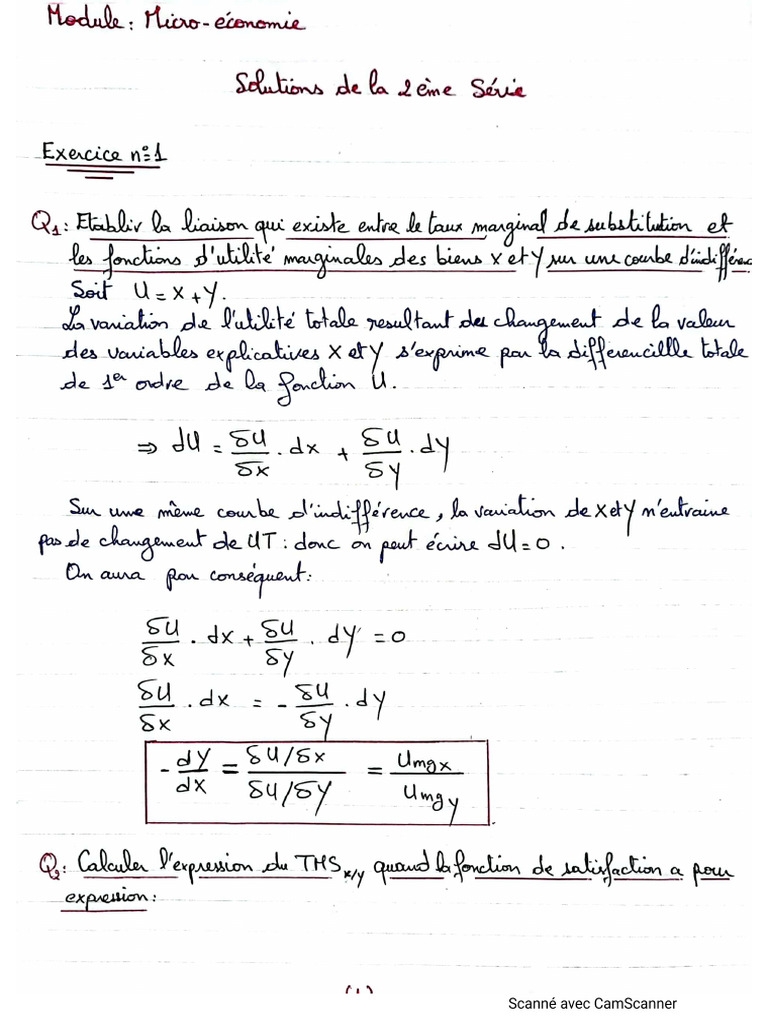 Module: Micro-économie
Solutions de la 2ème Série
Exercice n°1
Q1: Etablir la liaison qui existe entre le taux marginal de substitution et
les fonctions d'utilité marginales des biens x et y sur une courbe d'indifféren
Soit U = x + y.
La variation de l'utilité totale resultant des changement de la valeur
des variables explicatives x et y s'exprime par la differencillle totale
de 1er ordre de la fonction U.
⇒ dU = δU/δx . dx + δU/δy . dy
Sur une même courbe d'indifférence, la variation de x et y n'entraine
pas de changement de UT : donc on peut écrire dU = 0.
On aura par conséquent:
δU/δx . dx + δU/δy . dy = 0
δU/δx . dx = - δU/δy . dy
- dy/dx = (δU/δx)/(δU/δy) = Umgx/Umgy
Q2: Calculer l'expression du TMS x/y quand la fonction de satisfaction a pour
expression:
(1)
Scanné avec CamScanner